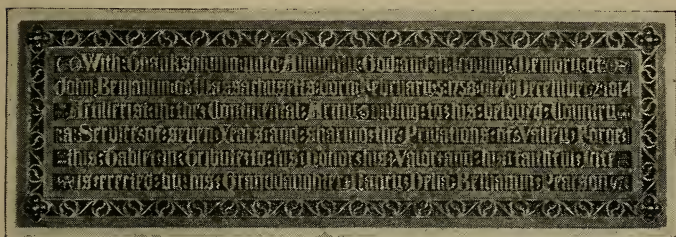 With Thanksgiving unto Almighty God and in loving Memory of
John Benjamin of Massachusetts born February 1758 died December 1814
in the Continental Army giving to his beloved Country
a Service of seven Years and sharing the Privations of Valley Forge
this Tablet in Tribute to his Honor his Valor and his faithful Life
is erected by his Granddaughter Benjamin Pearson